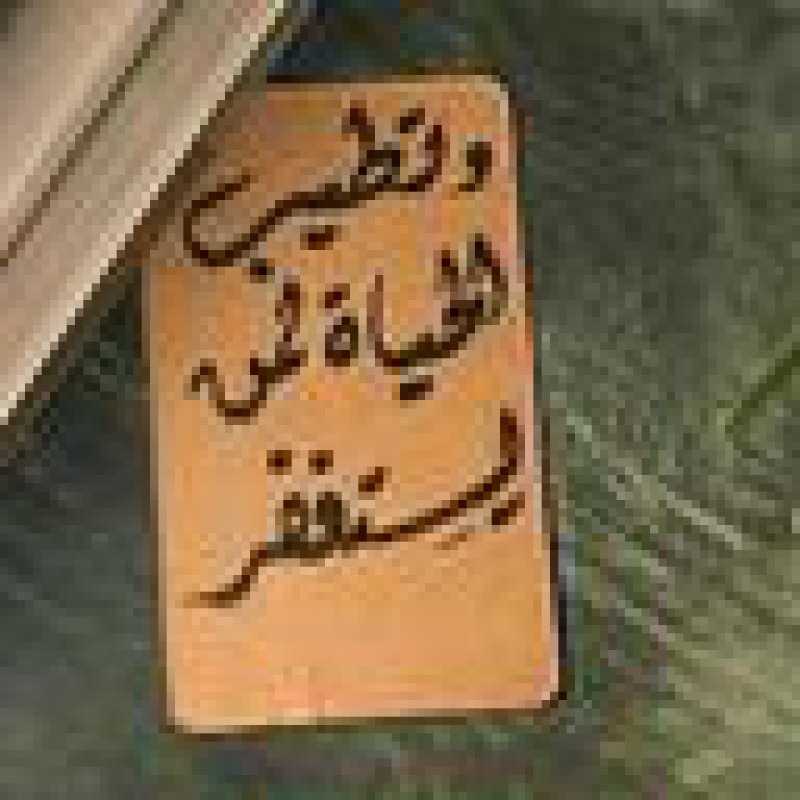 وتطيب
الحياة لمن
يستغفر